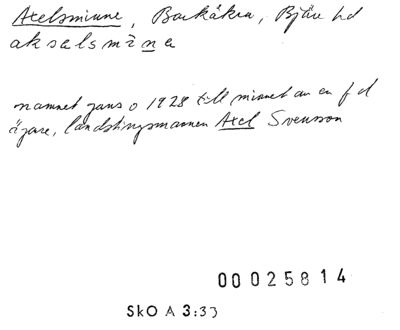 Axelsminne, Barkåkra, Bjäre hd
aksɛlsmīnɛ
namnet gavs o 1928 till minnet av en f d
ägare, landstingsmannen Axel Svensson
00025814
SkO A 3:33